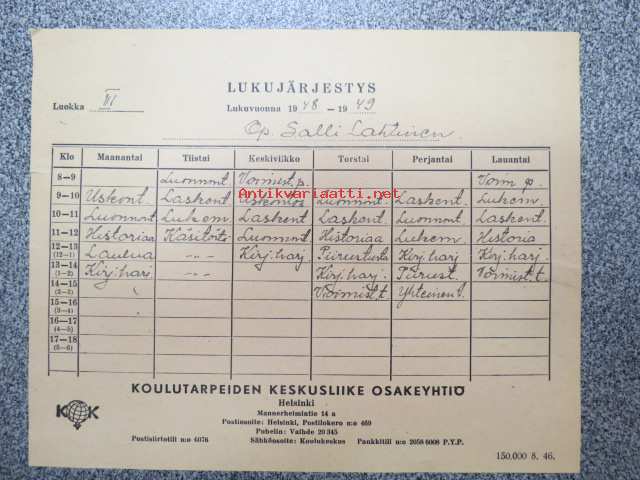 LUKUJÄRJESTYS
Luokka III Lukuvuonna 1948 – 1949
Op. Salli Lahtinen.
Klo Maanantai Tiistai Keskiviikko Torstai Perjantai Lauantai
8–9 Luonnont. Voimist. p. Voim p.
9–10 Uskont. Laskent. Uskontoa Luonnont. Laskent. Lukem.
Antikvariaatti.net
10–11 Luonnont. Lukem. Laskent. Laskent. Luonnont. Laskent.
11–12 Historiaa Käsitöitä Luonnont. Historiaa Lukem. Historia
12–13 (12–1) Laulua –„– Kirj. harj. Piirustusta Kirj. harj. Kirj. harj.
13–14 (1–2) Kirj. harj. –„– Kirj. harj. Piirust. Voimist. t.
14–15 (2–3) Voimist. t. Yhteinen t.
15–16 (3–4)
16–17 (4–5)
17–18 (5–6)
KOULUTARPEIDEN KESKUSLIIKE OSAKEYHTIÖ
KK
Helsinki
Mannerheimintie 14 a
Postiosoite: Helsinki, Postilokero n:o 469
Puhelin: Vaihde 20 345
Postisiirtotili n:o 6076 Sähköosoite: Koulukeskus Pankkitili n:o 2058 6008 P.Y.P.
150.000 8. 46.